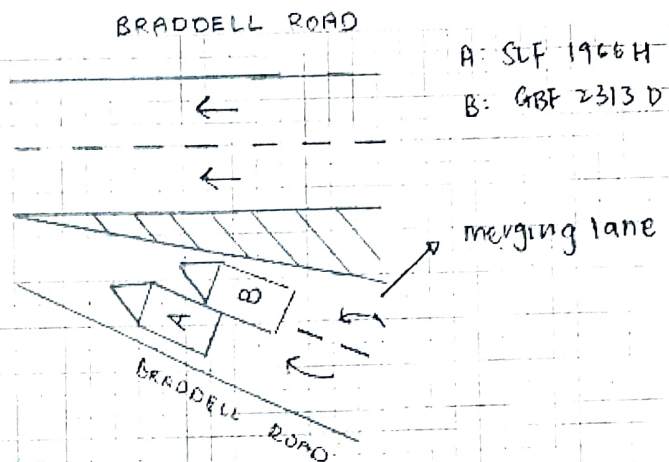 BRADDELL ROAD
A: SLF 1966 H
B: GBF 2313 D
merging lane
B
A
BRADDELL ROAD